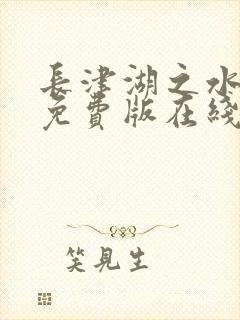 長津湖之水
免費版在綫
笑見生